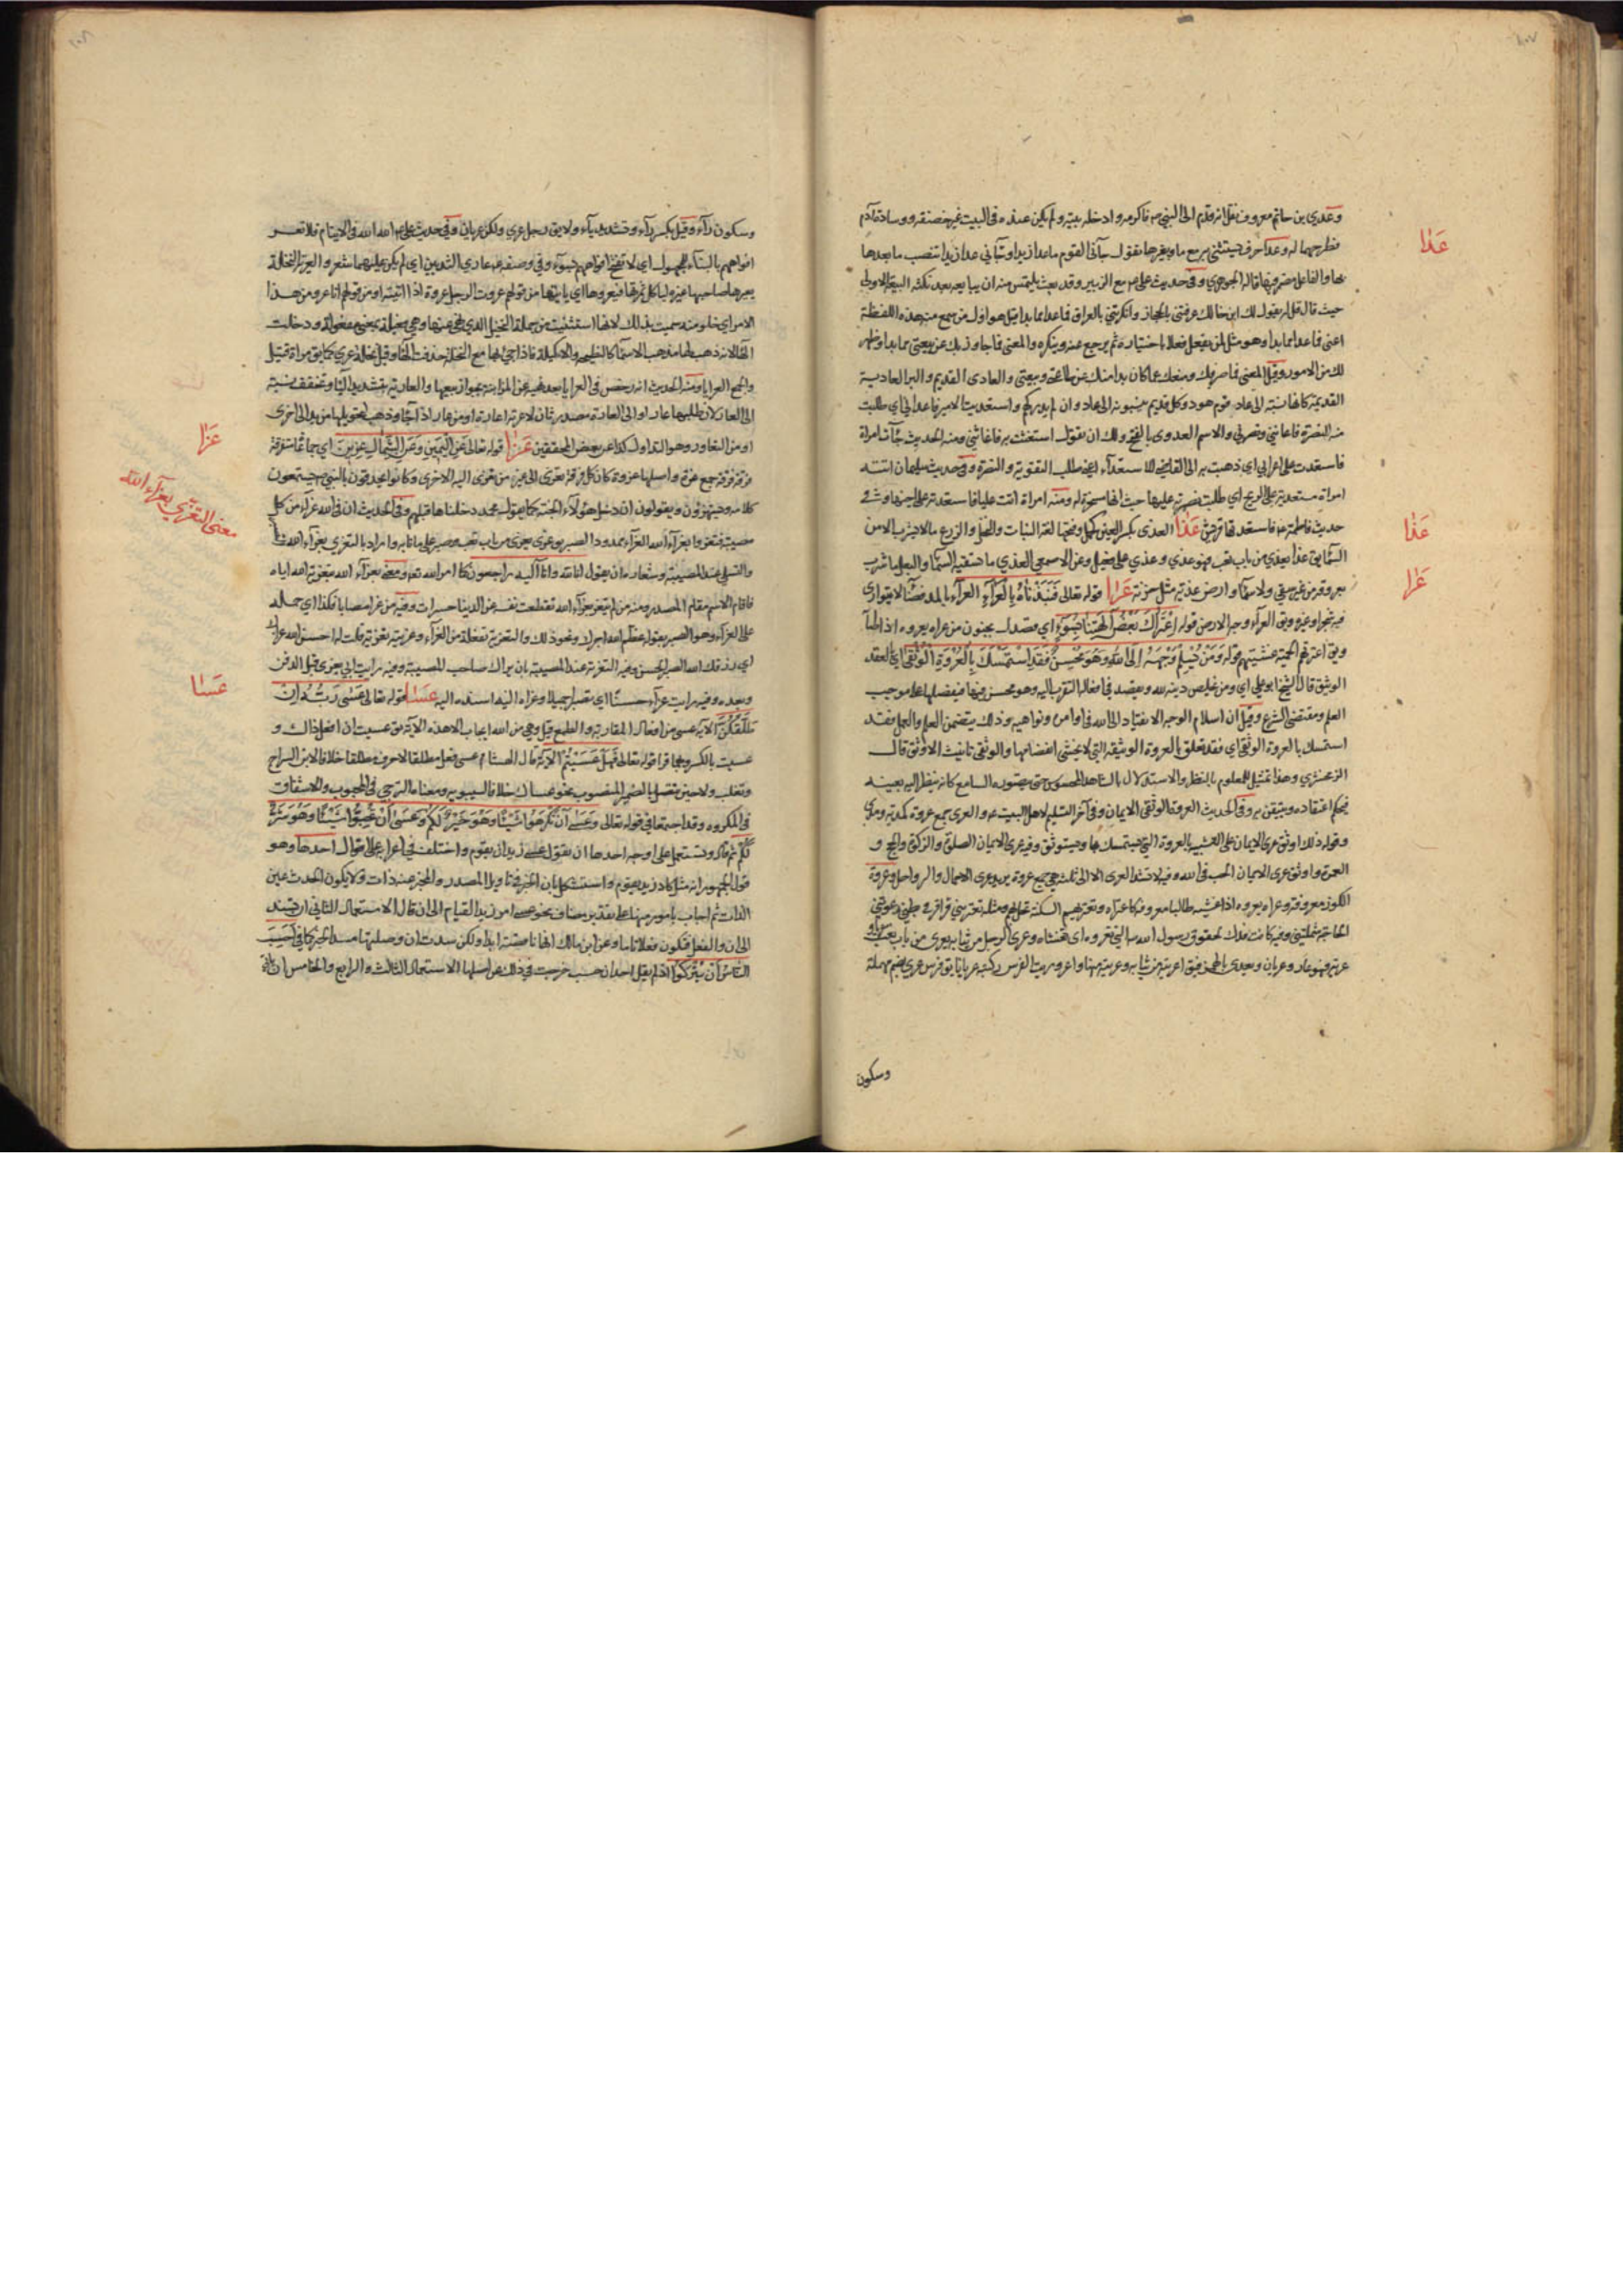 ١٠٧
وعدي بن حاتم معروف نقل انه قدم الى النبي ص فاكرمه وادخله بيته ولم يكن عنده في البيت غير خصفة ووسادة آدم
فطرحهما له وعدا حرف يستثنى به مع ما وبغيرها تقول جآءني القوم ما عدا زيدا وجآءني عدا زيدا تنصب ما بعدها
بها والفاعل مضمر فيها قاله الجوهري وفي حديث علي ع مع الزبير وقد بعث يلتمس منه ان يبايعه بعد نكثه البيعة الاولى
حيث قال قل له يقول لك ابن خالك عرفتني بالحجاز وانكرتني بالعراق فما عدا مما بدا قيل هو اول من سمع منه هذه اللفظة
اعنى فما عدا مما بدا وهو مثل لمن يفعل فعلا باختياره ثم يرجع عنه وينكره والمعنى فما جاوز بك عن بيعتي مما بدا وظهر
لك من الامور وقيل المعنى فما صرفك ومنعك عما كان بدا منك عن طاعتي وبيعتي والعادى القديم والبئر العادية
القديمة كانها نسبة الى عاد قوم هود وكل قديم ينسبونه الى عاد وان لم يدركهم واستعديت الامير فاعداني اي طلبت
منه النصرة فاعانني ونصرني والاسم العدوى بالفتح ولك ان تقول استغثت به فاغاثني ومنه الحديث جآءت امراة
فاستعدت على اعرابي اي ذهبت به الى القاضي للاستعدآء اعني طلب التقوية والنصرة وفي حديث سليمان اتته
امراة مستعدية على الريح اي طلبت نصرته عليها حيث انها مسخرة له ومنه امراة اتت عليا فاستعدته على اخيها وفي
حديث فاطمة ع فاستعدتها قريش عذا العذى بكسر العين كحمل وفتحها لغة النبات والنخل والزرع ما لا يشرب الا من
السمآء يقال عذا يعذي من باب تعب فهو عذي وعذي على فعيل وعن الاصمعي العذي ما تسقيه السمآء والبعل ما شرب
بعروقه من غير سقي ولا سمآء وارض عذية مثل خربة عرا قوله تعالى فَنَبَذْنَاهُ بِالْعَرَآءِ العرآء بالمد فضآء لا يتوارى
فيه شجر او غيره ويقال العرآء وجه الارض قوله اعْتَرَاكَ بَعْضُ آلِهَتِنَا بِسُوءٍ اي قصدك بجنون من عراه يعروه اذا المآ
ويقال اعترتهم الحمية غشيتهم قوله وَمَنْ يُسْلِمْ وَجْهَهُ اِلَى اللهِ وَهُوَ مُحْسِنٌ فَقَدِ اسْتَمْسَكَ بِالْعُرْوَةِ الْوُثْقَى اي بالعقد
الوثيق قال الشيخ ابو علي اي ومن يخلص دينه لله ويقصد في افعاله التقرب اليه وهو محسن فيها فيفعلها على موجب
العلم ومقتضى الشرع وقيل ان اسلام الوجه الانقياد الى الله في اوامره ونواهيه وذلك يتضمن العلم والعمل فقد
استمسك بالعروة الوثقى اي فقد تعلق بالعروة الوثيقة التي لا يخشى انفصامها والوثقى تانيث الاوثق قال
الزمخشري وهذا تمثيل للمعلوم بالنظر والاستدلال بالمشاهد المحسوس حتى يتصوره السامع كانه ينظر اليه بعينه
فيحكم اعتقاده ويتيقن به وفي الحديث العروة الوثقى الايمان وفي آخر التسليم لاهل البيت ع والعرى جمع عروة كمدية ومدى
وقوله ذلك اوثق عرى الايمان على التشبيه بالعروة التي يتمسك بها ويستوثق وفيه عرى الايمان الصلوة والزكوة والحج و
العمرة واوثق عرى الايمان الحب في الله وفيه لا تشد العرى الا الى ثلث هي جمع عروة يريد عرى الاحمال والرواحل وعروة
الكوز معروفة وعراه يعروه اذا غشيه طالبا معروفه كاعتراه
الحاجة وفيه كانت فدك لحقوق رسول الله ص التي تعروه اى تغشاه وعري الرجل من ثيابه يعرى من باب تعب
عرية فهو عار وعريان ويعدى بالهمز فيقال اعريته من ثيابه وعريته منها واعروريت الفرس ركبته عريانا يقال فرس عري بضم مهملة
وسكون
عدا
عذا
عرا
١٠٨
وسكون رآء وقيل بكسر رآء وتشديد يآء ولا يقال رجل عري ولكن عريان وفي حديث علي ع الله الله في الايتام فلا تعر
افواههم بالبنآء للمجهول اي لا تفتح افواههم بسوء وفي وصفه ع عاري الثديين اي لم يكن عليهما شعر والعرية النخلة
يعريها صاحبها غيره لياكل ثمرتها فيعروها اي ياتيها من قولهم عروت الرجل عروة اذا اتيته او من قولهم انا عرو من هذا
الامر اي خلو منه سميت بذلك لانها استثنيت من جملة النخيل الذي نهي عنها وهي فعيلة بمعنى مفعولة ودخلت
الهآء لانه ذهب بها مذهب الاسمآء كالنطيحة والاكيلة فاذا جئ بها مع النخلة حذفت الهآء وقيل نخلة عري كما يقال امراة قتيل
والجمع العرايا ومنه الحديث انه رخص في العرايا بعد نهيه عن المزابنة بجواز بيعها والعارية بتشديد اليآء وتخفف نسبة
الى العار لان طلبها عار او الى العارة مصدر ثان لاعرته اعارة او من عار اذا جآء وذهب لتحويلها من يد الى اخرى
او من التعاور وهو التداول كذا عن بعض المحققين عزا قوله تعالى عَنِ الْيَمِينِ وَعَنِ الشِّمَالِ عِزِينَ اي جماعات متفرقة
فرقة فرقة جمع عزة واصلها عزوة كان كل فرقة تعتزى الى غير من تعتزى اليه الاخرى وكانوا يحدقون بالنبي ص يستمعون
كلامه ويستهزؤن ويقولون ان دخل هؤلآء الجنة كما يقول محمد دخلناها قبلهم وفي الحديث ان في الله عزآء من كل
مصيبة فتعزوا بعزآء الله العزآء ممدودا الصبر يقال عزى يعزى من باب تعب صبر على ما نابه واراد بالتعزي بعزآء الله
والتسلي عند المصيبة وشعاره ان يقول انا لله وانا اليه راجعون كما امر الله تعالى ومعنى بعزآء الله بتعزية الله اياه
فاقام الاسم مقام المصدر ومنه من لم يتعز بعزآء الله تقطعت نفسه عن الدنيا حسرات وفيه من عزا مصابا فكذا اي حمله
على العزآء وهو الصبر بقوله عظم الله اجرك ونحو ذلك والتعزية تفعلة من العزآء وعزيته تعزية قلت له احسن الله عزاك
اي رزقك الله الصبر الحسن وفيه التعزية عند المصيبة بان يراك صاحب المصيبة وفيه رايت ابي يعزى قبل الدفن
وبعده وفيه رايت عزآء حسنا اي صبرا جميلا وعزاه اليه اسنده اليه عسا قوله تعالى عَسَى رَبُّهُ اِنْ
طَلَّقَكُنَّ الآية عسى من افعال المقاربة والطمع قيل وهي من الله ايجاب الا هذه الآية يقال عسيت ان افعل ذاك و
عسيت بالكسر وبهما قرا قوله تعالى فَهَلْ عَسَيْتُمْ الآية قال ابن هشام عسى فعل مطلقا لا حرف مطلقا خلافا لابن السراج
وثعلب ولا حين يتصل بالضمير المنصوب نحو عساك خلافا لسيبويه ومعناه الترجي في المحبوب والاشفاق
في المكروه وقد اجتمعا في قوله تعالى وَعَسَى اَنْ تَكْرَهُوا شَيْئًا وَهُوَ خَيْرٌ لَكُمْ وَعَسَى اَنْ تُحِبُّوا شَيْئًا وَهُوَ شَرٌّ
لَكُمْ ثم قال وتستعمل على اوجه احدها ان يقول عسى زيد ان يقوم واختلف في اعرابه على اقوال احدها وهو
قول الجمهور انه مثل كاد زيد يقوم واستشكل بان الخبر في تاويل المصدر والمخبر عنه ذات ولا يكون الحدث عين
الذات ثم اجاب بامور منها على تقدير مضاف نحو عسى امر زيد القيام الى ان قال الاستعمال الثاني ان تسند
الى ان والفعل فتكون فعلا تاما وعن ابن مالك انها ناقصة ابدا ولكن سدت ان وصلتها مسد الجزئين كما في اَحَسِبَ
النَّاسُ اَنْ يُتْرَكُوا اذ لم يقل احد ان حسب خرجت في ذلك عن اصلها الاستعمال الثالث والرابع والخامس ان ياتي
عزا
معنى التعزي بعزآء الله
عسا